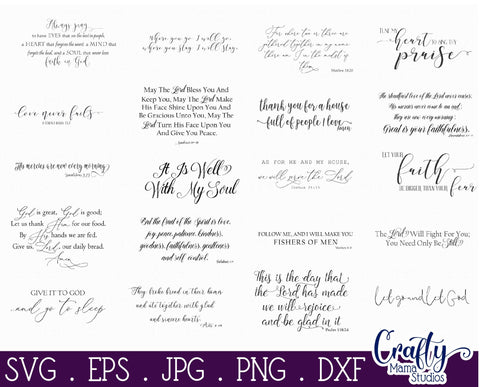 Always pray
to have EYES that see the best in people,
a HEART that forgives the worst, a MIND that
forgets the bad, and a SOUL that never loses
faith in God.
where you go, I will go,
where you stay, I will stay.
For where two or three are
gathered together in my name
there am I in the midst of
them.
Matthew 18:20
TUNE MY
heart
TO SING THY
praise
love never fails
1 CORINTHIANS 13:8
May The Lord Bless You And
Keep You, May The Lord Make
His Face Shine Upon You And
Be Gracious Unto You, May The
Lord Turn His Face Upon You
And Give You Peace.
thank you for a house
full of people I love
Amen
The steadfast love of the Lord never ceases,
His mercies never come to an end;
They are new every morning;
Great is your faithfulness.
Thy mercies are new every morning
Lamentations 3:23
It Is Well
With My Soul
AS FOR ME AND MY HOUSE,
we will serve the Lord.
Joshua 24:15
LET YOUR
faith
BE BIGGER THAN YOUR
fear
God is great, God is good;
Let us thank Him for our food.
By His hands we are fed,
Give us, Lord, our daily bread.
Amen
But the fruit of the Spirit is love,
joy, peace, patience, kindness,
goodness, faithfulness, gentleness
and self control.
FOLLOW ME, AND I WILL MAKE YOU
FISHERS OF MEN
The Lord Will Fight For You;
You Need Only Be Still
GIVE IT TO GOD
and go to sleep
They broke bread in their homes
and ate together with glad
and sincere hearts.
Acts 2:46
This is the day that
the Lord has made
we will rejoice
and be glad in it
Psalm 118:24
Let go and Let God
SVG . EPS . JPG . PNG . DXF
Crafty
Mama
Studios